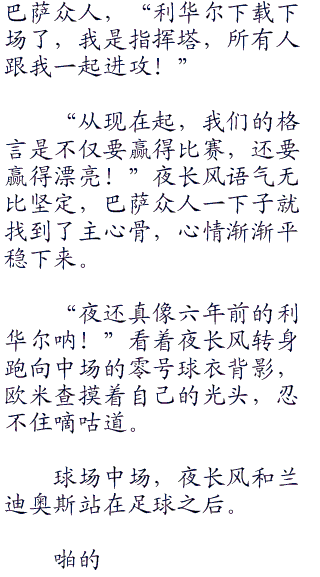 巴萨众人，“利华尔下载下
场了，我是指挥塔，所有人
跟我一起进攻！”
“从现在起，我们的格
言是不仅要赢得比赛，还要
赢得漂亮！”夜长风语气无
比坚定，巴萨众人一下子就
找到了主心骨，心情渐渐平
稳下来。
“夜还真像六年前的利
华尔呐！”看着夜长风转身
跑向中场的零号球衣背影，
欧米查摸着自己的光头，忍
不住嘀咕道。
球场中场，夜长风和兰
迪奥斯站在足球之后。
啪的